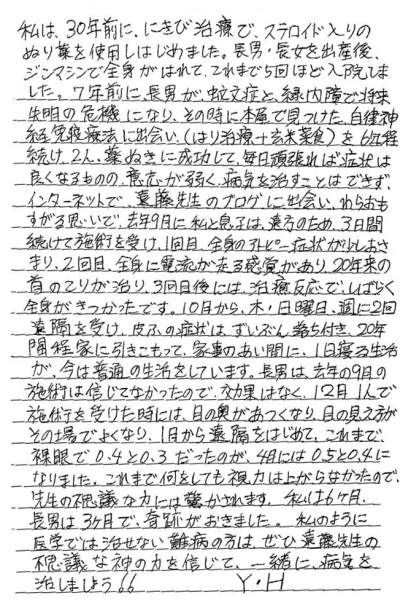 私は、30年前に、にきび治療で、ステロイド入りの
ぬり薬を使用しはじめました。長男・長女を出産後、
ジンマシンで全身がはれて、これまで5回ほど入院しま
した。7年前に、長男が、蚊文症と、緑内障で将来
失明の危機になり、その時に本屋で見つけた、自律神
経免疫療法に出会い、(はり治療+玄米菜食)を6年程
続け、2人、薬ぬきに成功して、毎日頑張れば症状は
良くなるものの、意志が弱く、病気を治すことはできず、
インターネットで、遠藤先生のブログに出会い、わらおも
すがる思いで、去年9月に私と息子は、遠方のため、3日間
続けて施術を受け、1回目、全身のアトピー症状が少しおさ
まり、2回目、全身に電流が走る感覚があり、20年来の
首のこりが治り、3回目後には、治療反応で、しばらく
全身がきつかったです。10月から、木・日曜日、週に2回
遠隔を受け、皮ふの症状は、ずいぶん落ち付き、20年
間程家に引きこもって、家事のあい間に、1日寝る生活
が、今は普通の生活をしています。長男は、去年の9月の
施術は信じてなかったので、効果はなく、12月1人で
施術を受けた時には、目の奥があつくなり、目の見え方が
その場でよくなり、1月から遠隔をはじめて、これまで
裸眼で0.4と0.3だったのが、4月には0.5と0.4に
なりました。これまで何をしても視力は上がらなかったので、
先生の不思議な力には驚かされます。私は6ヶ月、
長男は3ヶ月で、奇跡がおきました。私のように
医学では治せない難病の方は、ぜひ遠藤先生の
不思議な神の力を信じて、一緒に、病気を
治しましょう!! Y・H